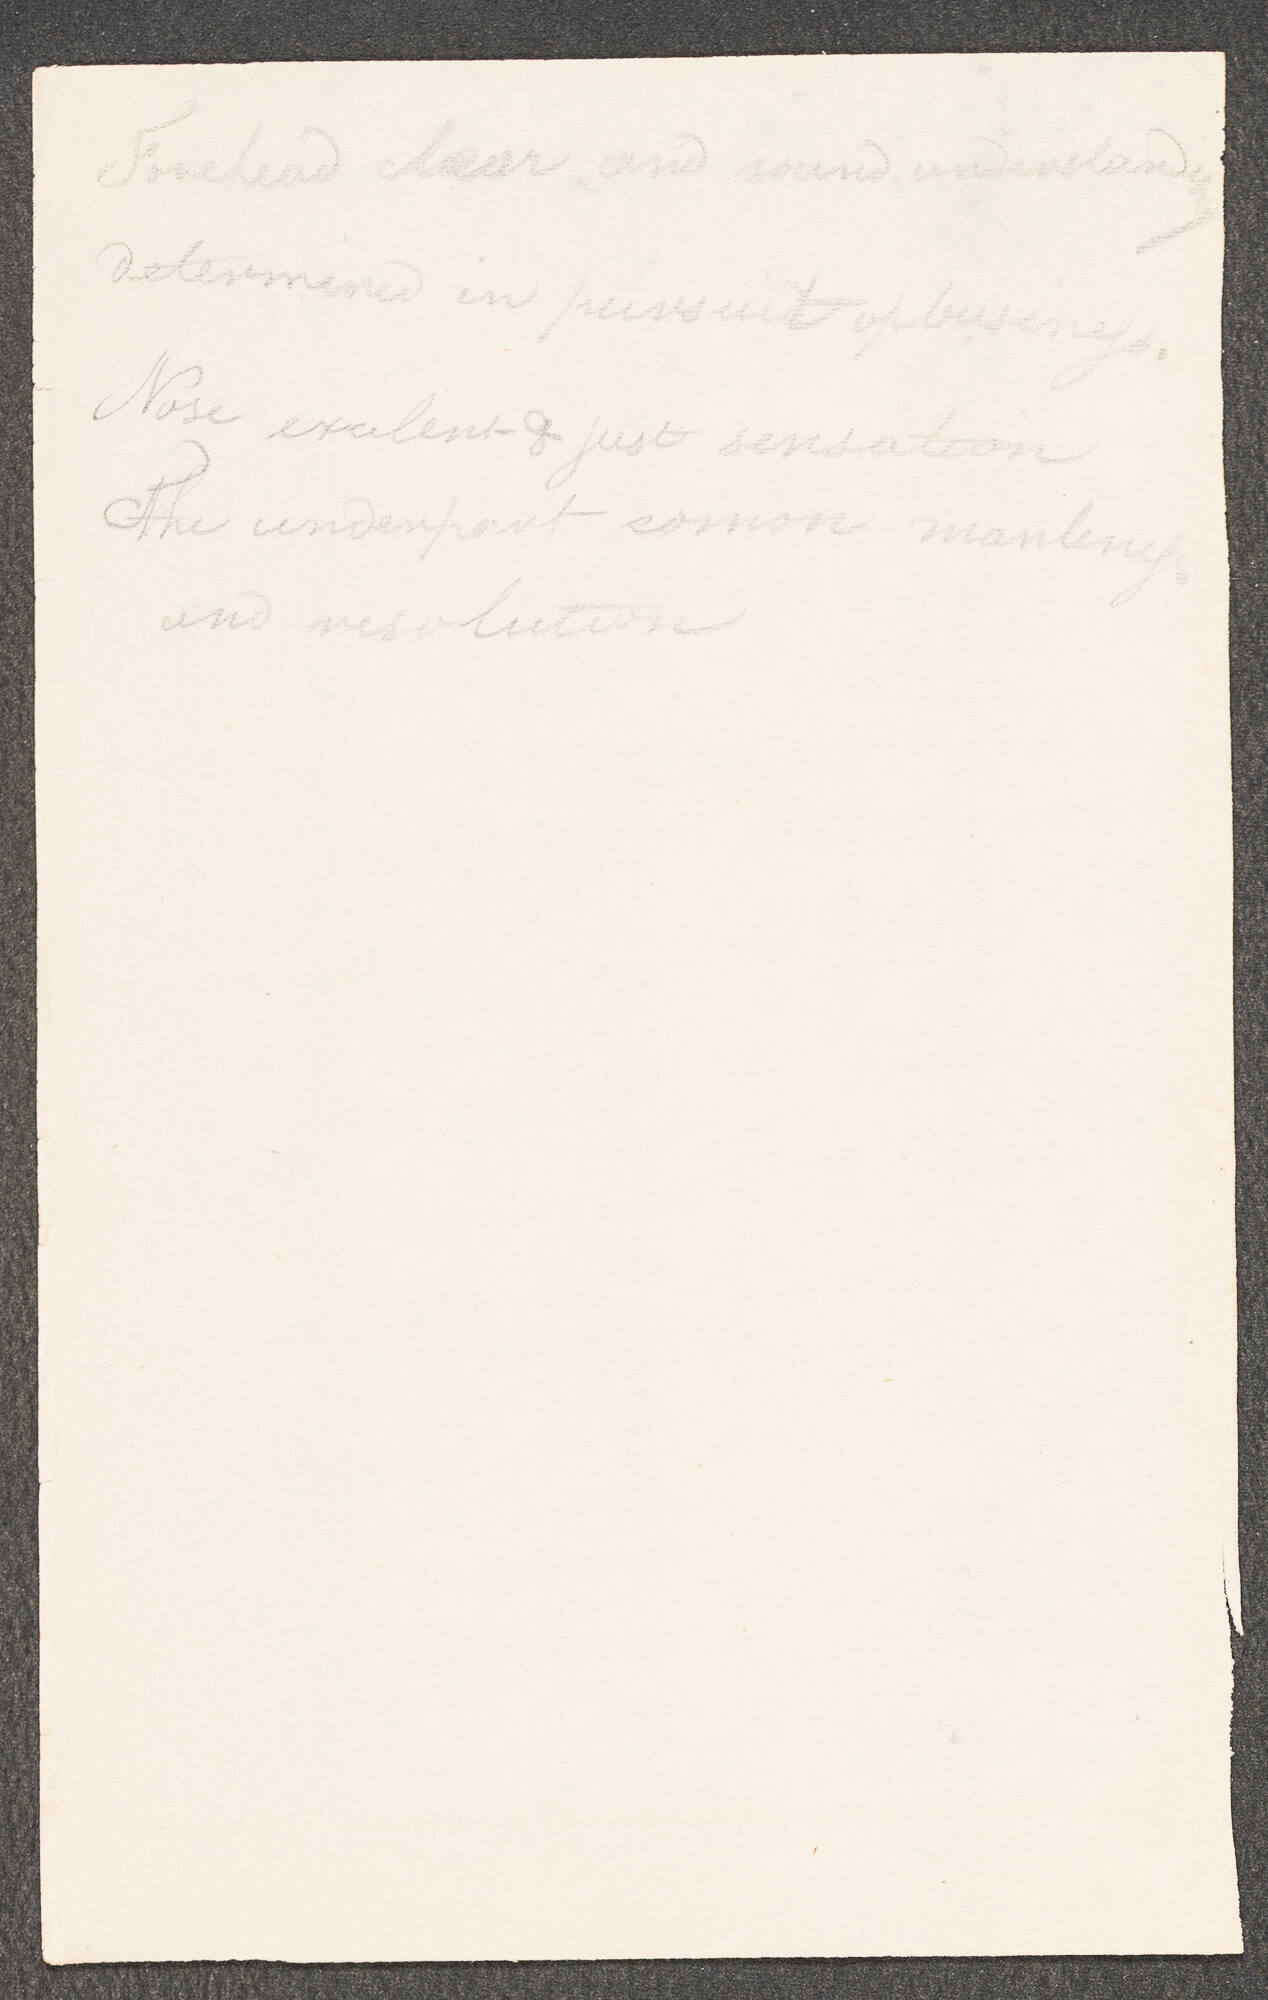 Forehead clear and sound understanding
determined in pursuit of business.
Nose exelent & just sensation
The underpart comon manleness.
and resolution